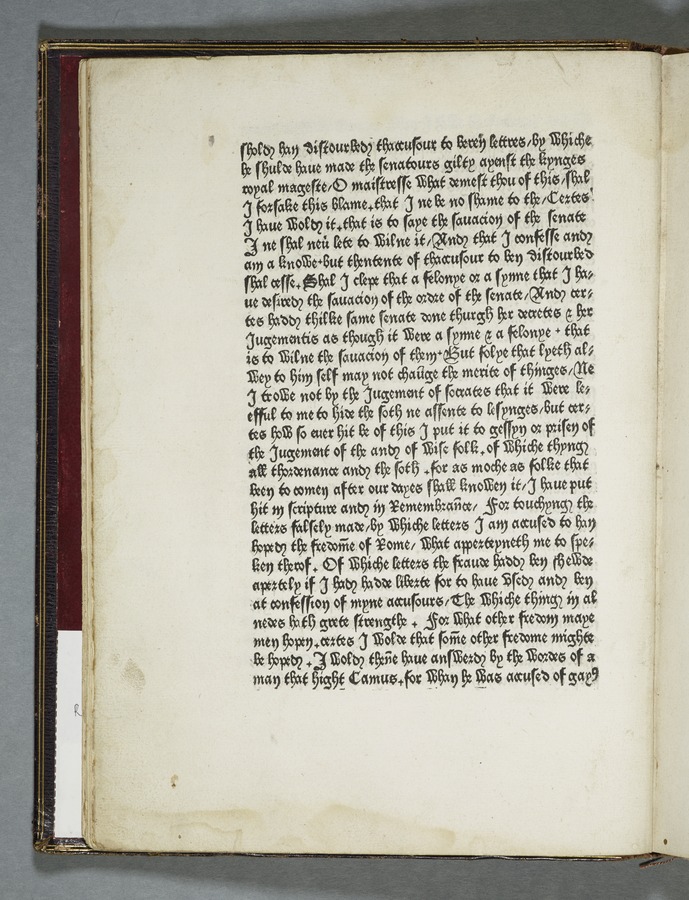 shold han distourbed thaccusour to beren lettres/by whiche
he shulde haue made the senatours gilty ayenst the kynges
royal mageste/O maistresse what demest thou of this/shal
I forsake this blame.that I ne be no shame to the/Certes
I haue wold it.that is to saye the sauacion of the senate
I ne shal neũ lete to wilne it/And that I confesse and
am a knowe.but thentente of thaccusour to ben distourbed
shal cesse.Shal I clepe that a felonye or a synne that I ha⸗
ue desired the sauacion of the ordre of the senate/And cer⸗
tes hadd thilke same senate done thurgh her decretes & her
Jugementis as though it were a synne & a felonye . that
is to wilne the sauacion of them.But folye that lyeth al⸗
wey to him self may not chaũge the merite of thinges/Ne
I trowe not by the Jugement of socrates that it were le⸗
efful to me to hide the soth ne assente to lesynges/but cer⸗
tes how so euer hit be of this I put it to gessyn or prisen of
the Jugement of the and of wise folk.of whiche thyng
all thordenance and the soth .for as moche as folke that
been to comen after our dayes shall knowen it/I haue put
hit in scripture and in Remembrañce/ For touchyng the
letters falsely made/by whiche letters I am accused to han
hoped the fredom̃e of Rome/ what apperteyneth me to spe⸗
ken therof . Of whiche letters the fraude hadd ben shewde
apertely if I had hadde liberte for to haue vsed and ben
at confession of myne accusours/The whiche thing in al
nedes hath grete strengthe . For what other fredom maye
men hopen.certes I wolde that som̃e other fredome mighte
be hoped .I wold theñe haue answerd by the wordes of a
man that hight Camus.for whan he was accused of gayꝰ